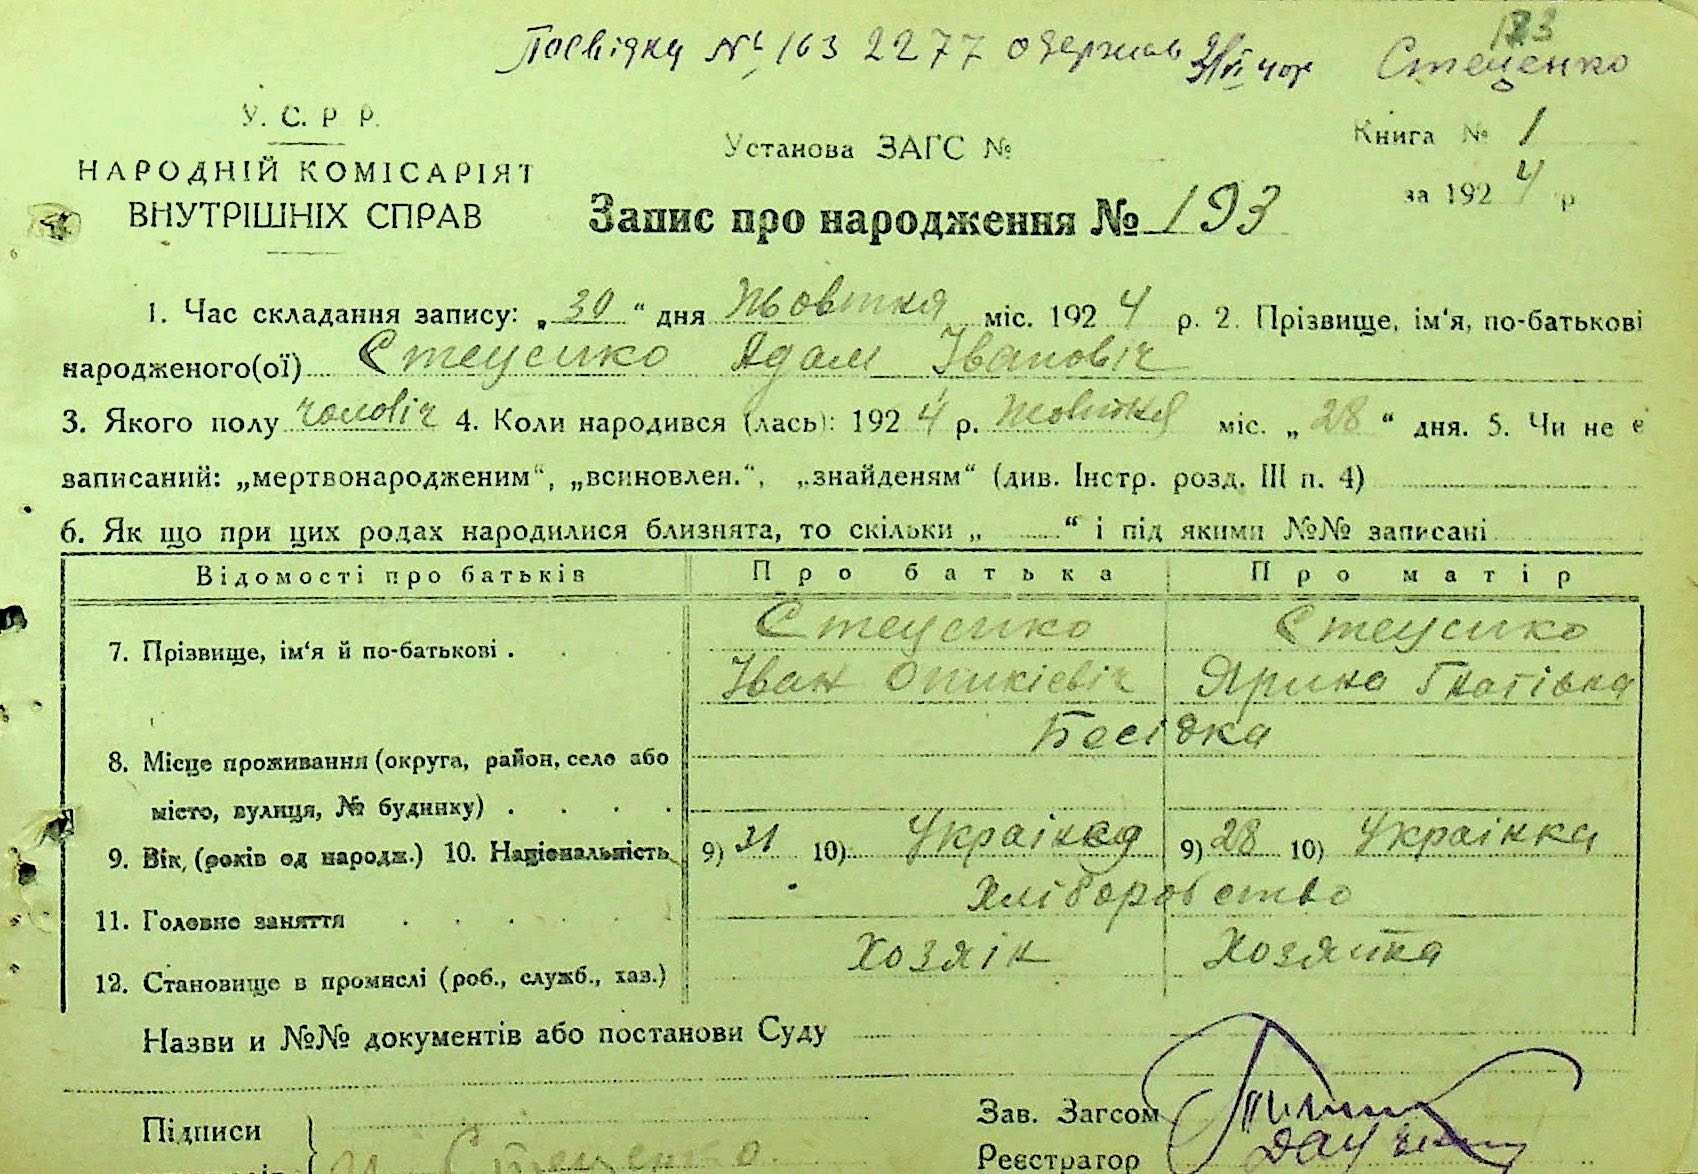 173
Посвідку № 163 2277 одержав Стеценко
У. С. Р. Р.
НАРОДНІЙ КОМІСАРІЯТ
ВНУТРІШНІХ СПРАВ
Установа ЗАГС №
Книга № 1
за 1924 р
Запис про народження № 193
1. Час складання запису: „30“ дня Жовтня міс. 1924 р. 2. Прізвище, ім‘я, по-батькові
народженого(ої) Стеценко Адам Івановіч
3. Якого полу чоловіч 4. Коли народився (лась): 1924 р. Жовтня міс. „28“ дня. 5. Чи не є
записаний: „мертвонародженим“, „всиновлен.“, „знайденям“ (див. Інстр. розд. III п. 4)
6. Як що при цих родах народилися близнята, то скільки „ “ і під якими №№ записані
Відомості про батьків Про батька Про матір
7. Прізвище, ім‘я й по-батькові . Стеценко Іван Стеценко Ярина Гнатівна
8. Місце проживання (округа, район, село або
місто, вулиця, № будинку) . . . . Бесідка
9. Вік, (років од народж.) 10. Національність 9) 31 10) 9) 28 10) Українка
11. Головне заняття . . . . . Хліборобство
12. Становище в промислі (роб., служб., хаз.) Хозяїн Хозяйка
Назви и №№ документів або постанови Суду
Підписи
Зав. Загсом
Реєстратор
Стеценко